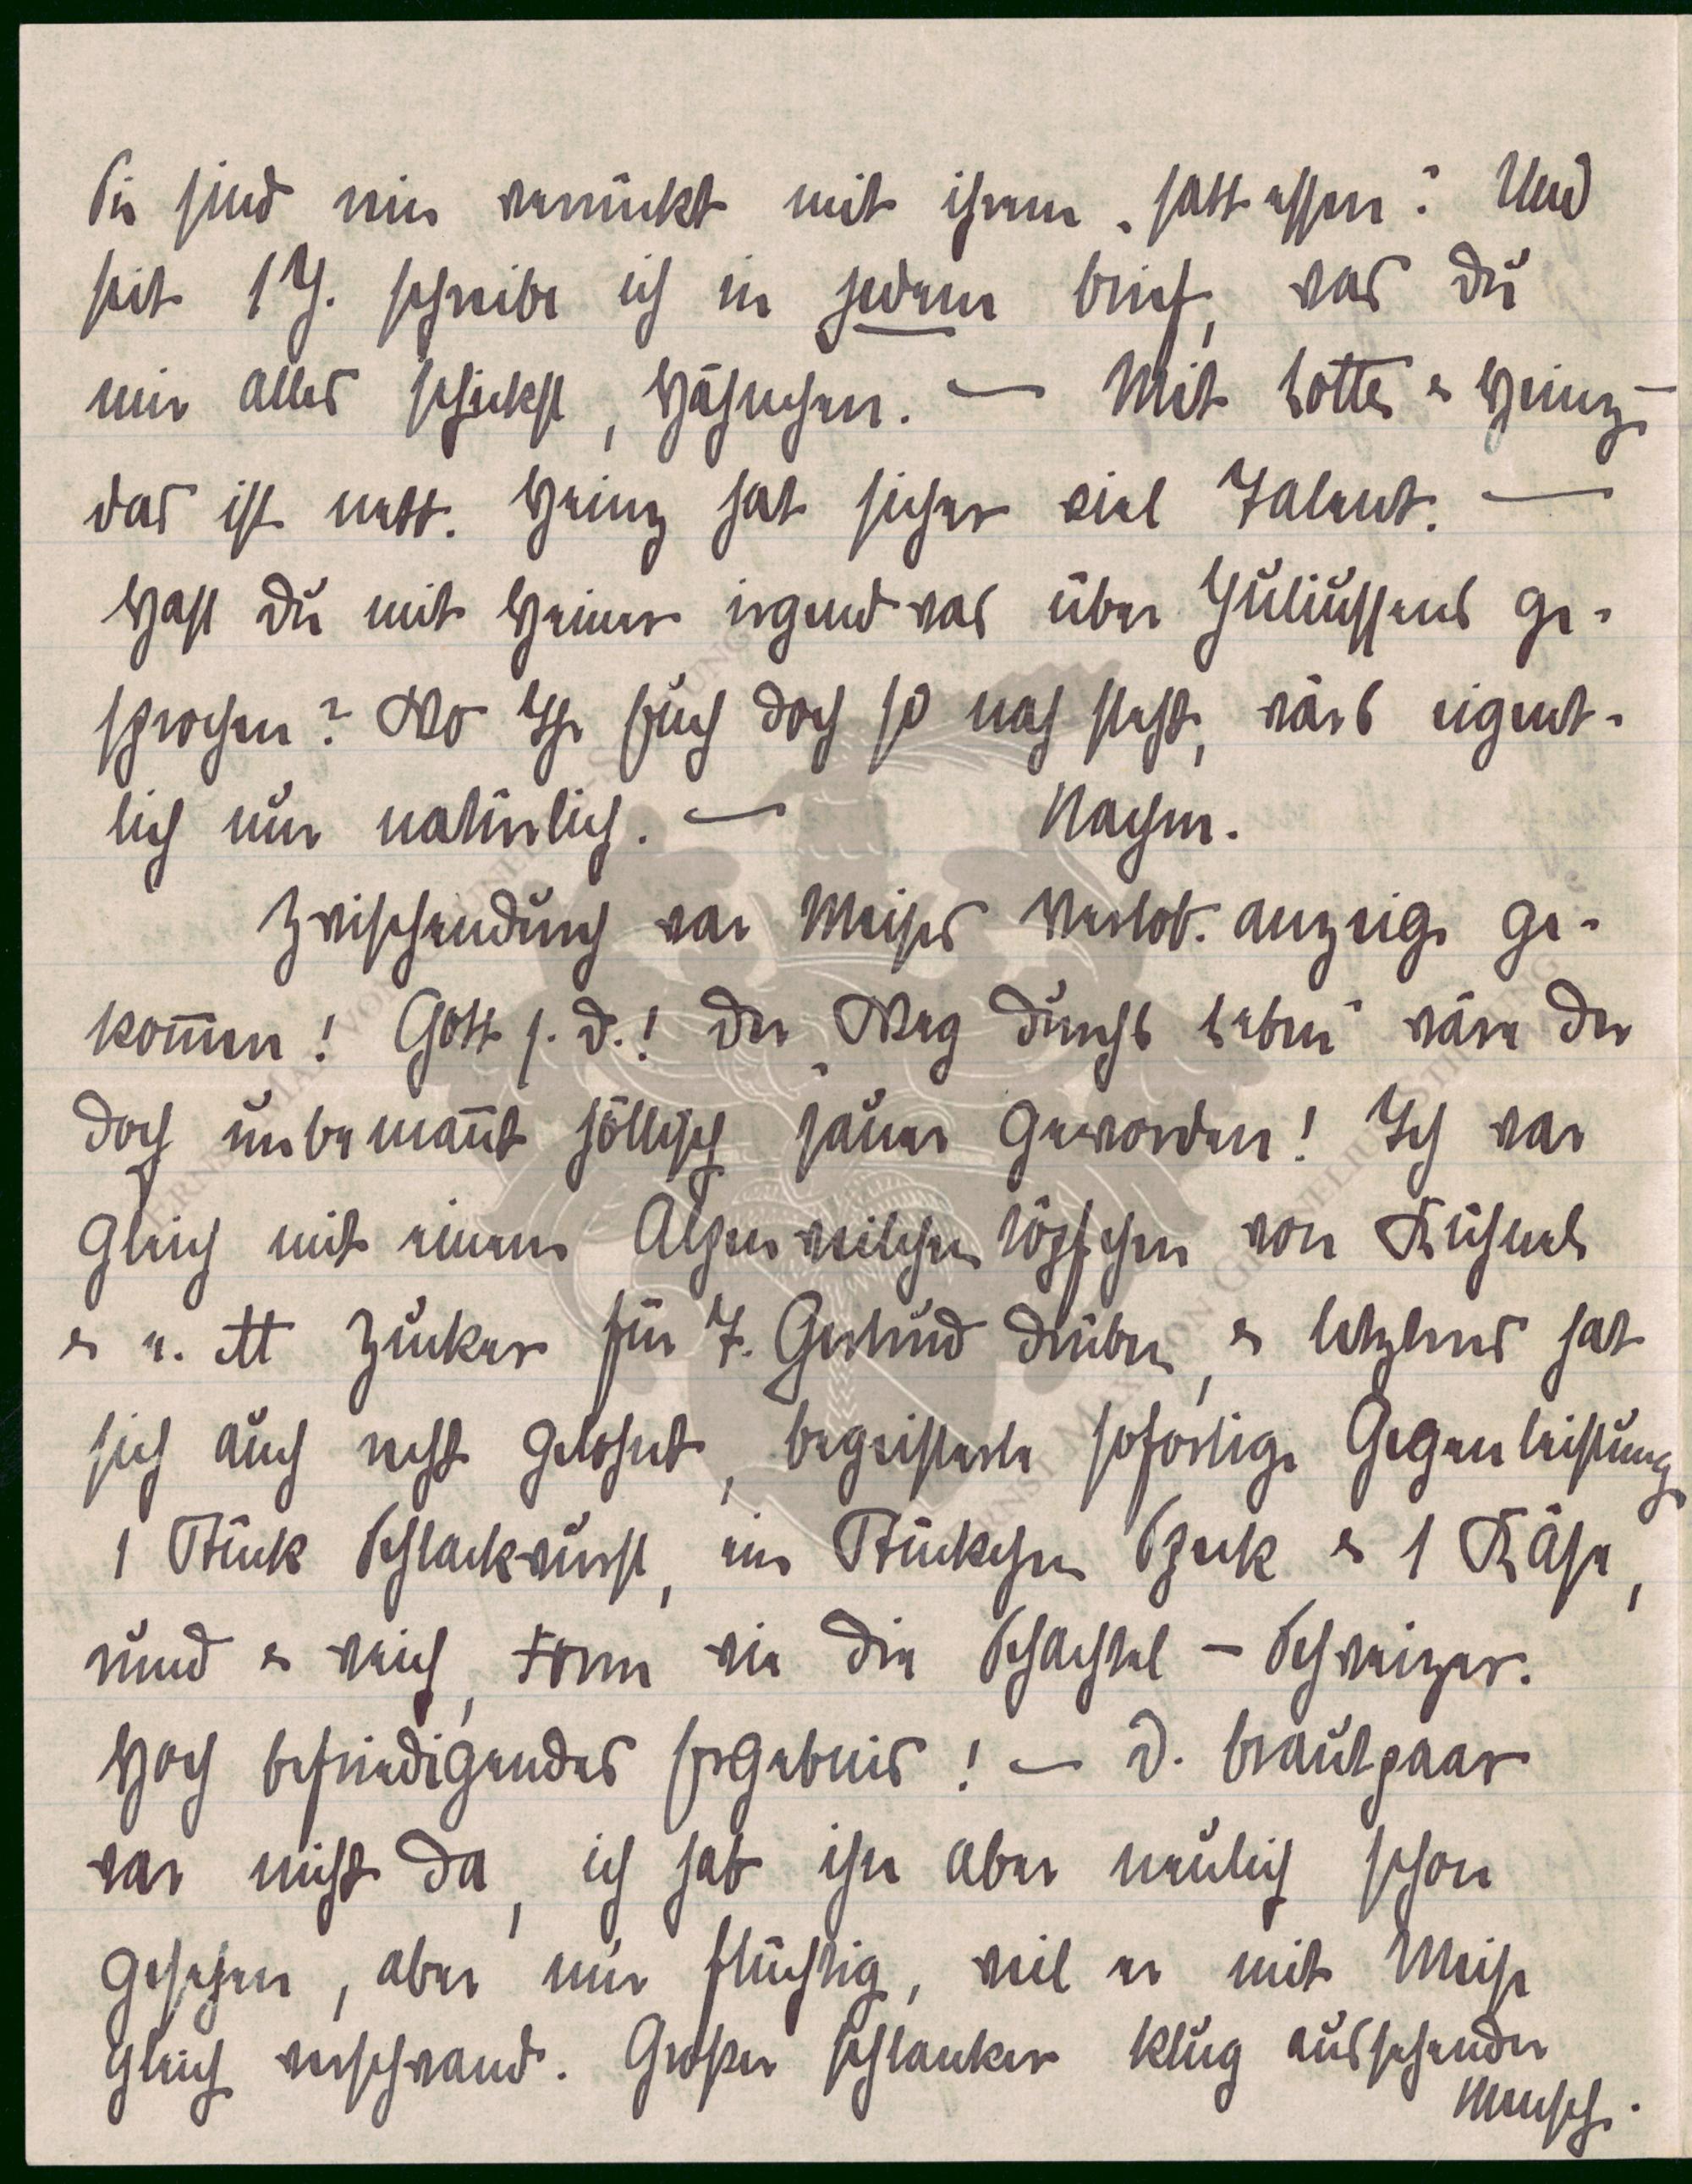 Sie sind nur verrückt mit ihrem „satt essen“. Und
seit 1 J. schreibe ich in jedem Brief, was Du
mir alles schickst, Hähnchen. — Mit Lotte & Heinz –
das ist nett. Heinz hat sicher viel Talent. —
Hast Du mit Heiner irgend was über Juliussens ge-
sprochen? Wo Ihr Euch doch so nah steht, wärs eigent-
lich nur natürlich. — Nachm.
Zwischendurch war Meises Verlob. anzeige ge-
kom̅en! Gott s. D.! Der „Weg durchs Leben“ wäre der
doch unbeman̅t höllisch sauer geworden! Ich war
gleich mit einem Alpenveilchentöpfchen von Kühnels
& e. ℔ Zucker für T. Gertrud drüben, & letzteres hat
sich auch recht gelohnt, begeisterte sofortige Gegenleistung
1 Stück Schlackwurst, ein Stückchen Speck & 1 Käse,
rund & weich, Form wie die Schachtel – Schweizer.
Hoch befriedigendes Ergebnis! — D. Brautpaar
war nicht da, ich hab ihn aber neulich schon
gesehen, aber nur flüchtig, weil er mit Meise
gleich verschwand. Großer schlanker klug aussehender
Mensch.